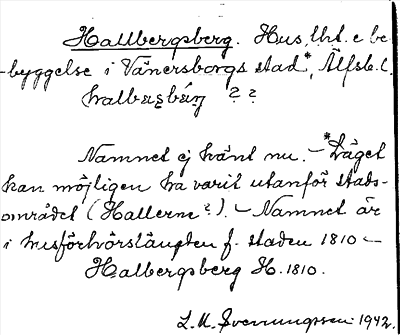 Hallbergsberg. Hus, lht. e be-
byggelse i Vänersborgs stad*, Älfsb. l.
? ?
Namnet ej känt nu. — *Läget
kan möjligen ha varit utanför stads-
området (Hallerne?). — Namnet är
i husförhörslängden f. staden 1810 —
Halbergsberg H. 1810.
1942.